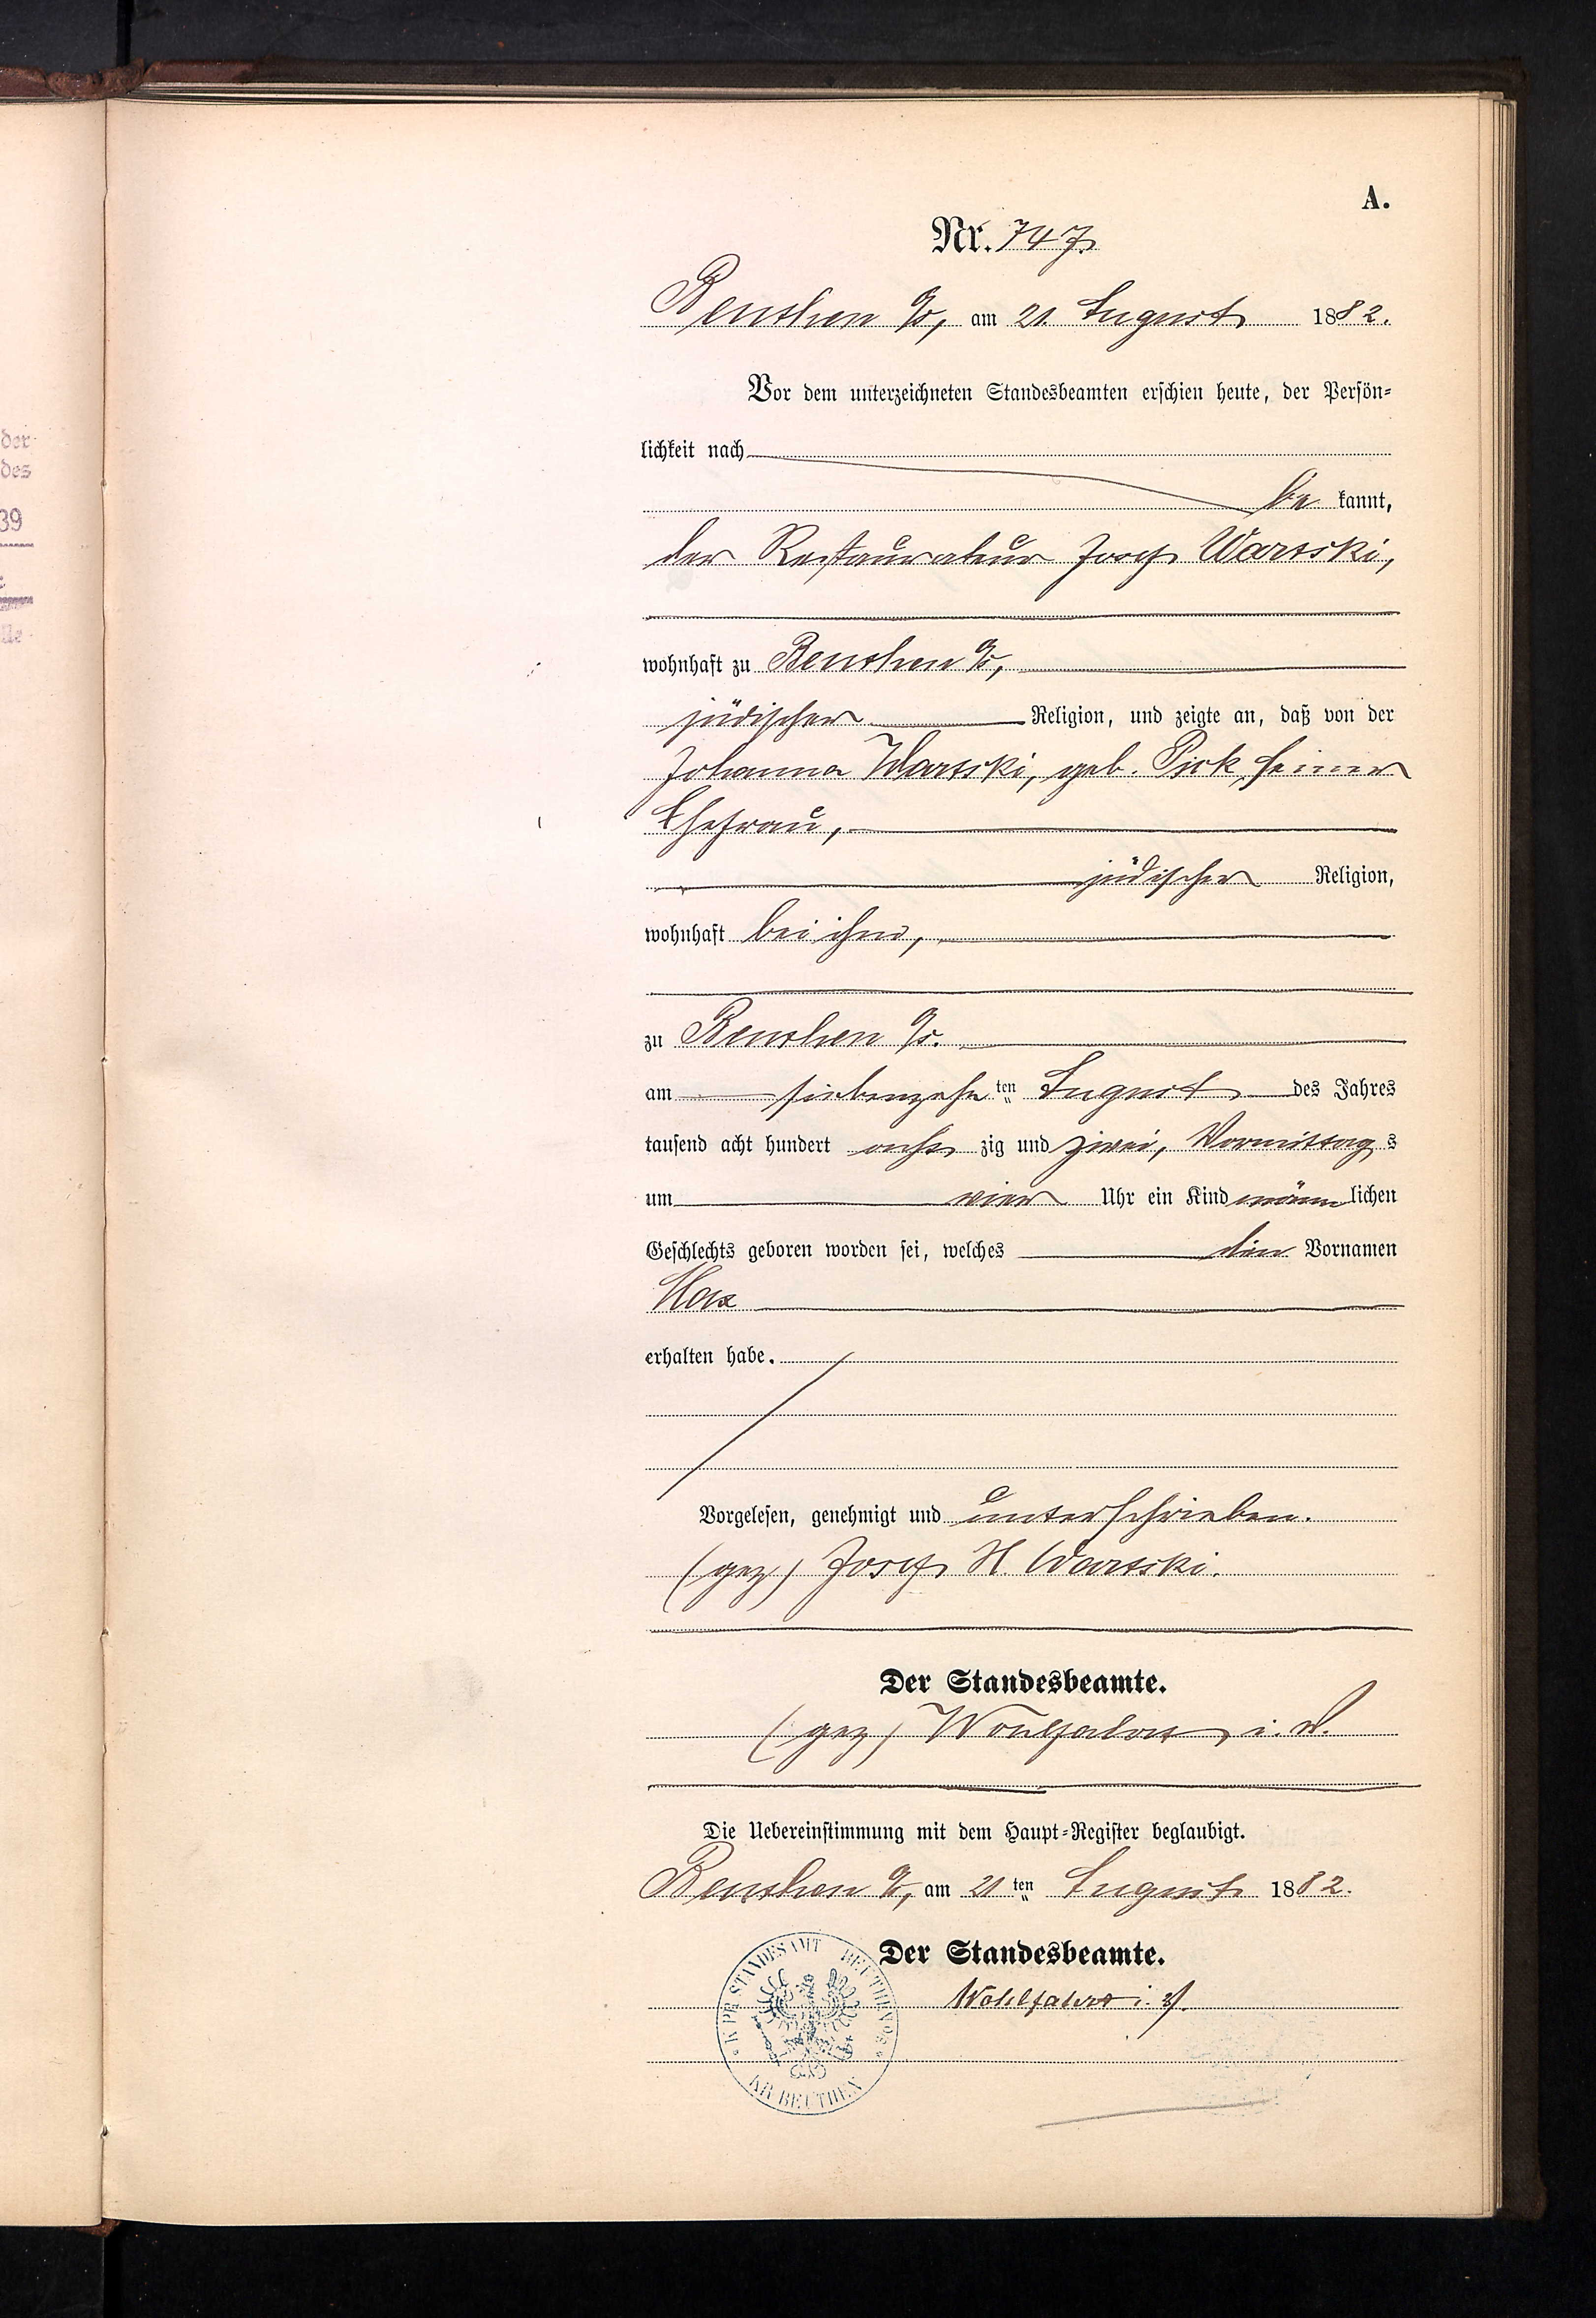 der
des
39
A.
Nr. 747.
Beuthen O/S, am 21. August 1882.
Vor dem unterzeichneten Standesbeamten erschien heute, der Persön-
lichkeit nach
be kannt,
der Restaurateur Josef Warski,
wohnhaft zu Beuthen O/S,
jüdischer Religion, und zeigte an, daß von der
Johanna Warski, geb. Pick, seiner
Ehefrau,
jüdischer Religion,
wohnhaft bei ihm,
zu Beuthen O/S.
am siebenzehn ten August des Jahres
tausend acht hundert acht zig und zwei, Vormittag s
um vier Uhr ein Kind männ lichen
Geschlechts geboren worden sei, welches den Vornamen
Max
erhalten habe.
Vorgelesen, genehmigt und unterschrieben.
(gez) Josef H. Warski.
Der Standesbeamte.
(gez) Wohlfahrt i. V.
Die Uebereinstimmung mit dem Haupt-Register beglaubigt.
Beuthen O/S, am 21 ten August 1882.
Der Standesbeamte.
Wohlfahrt i. V.
K. PR. STANDESAMT BEUTHEN O/S
KR. BEUTHEN